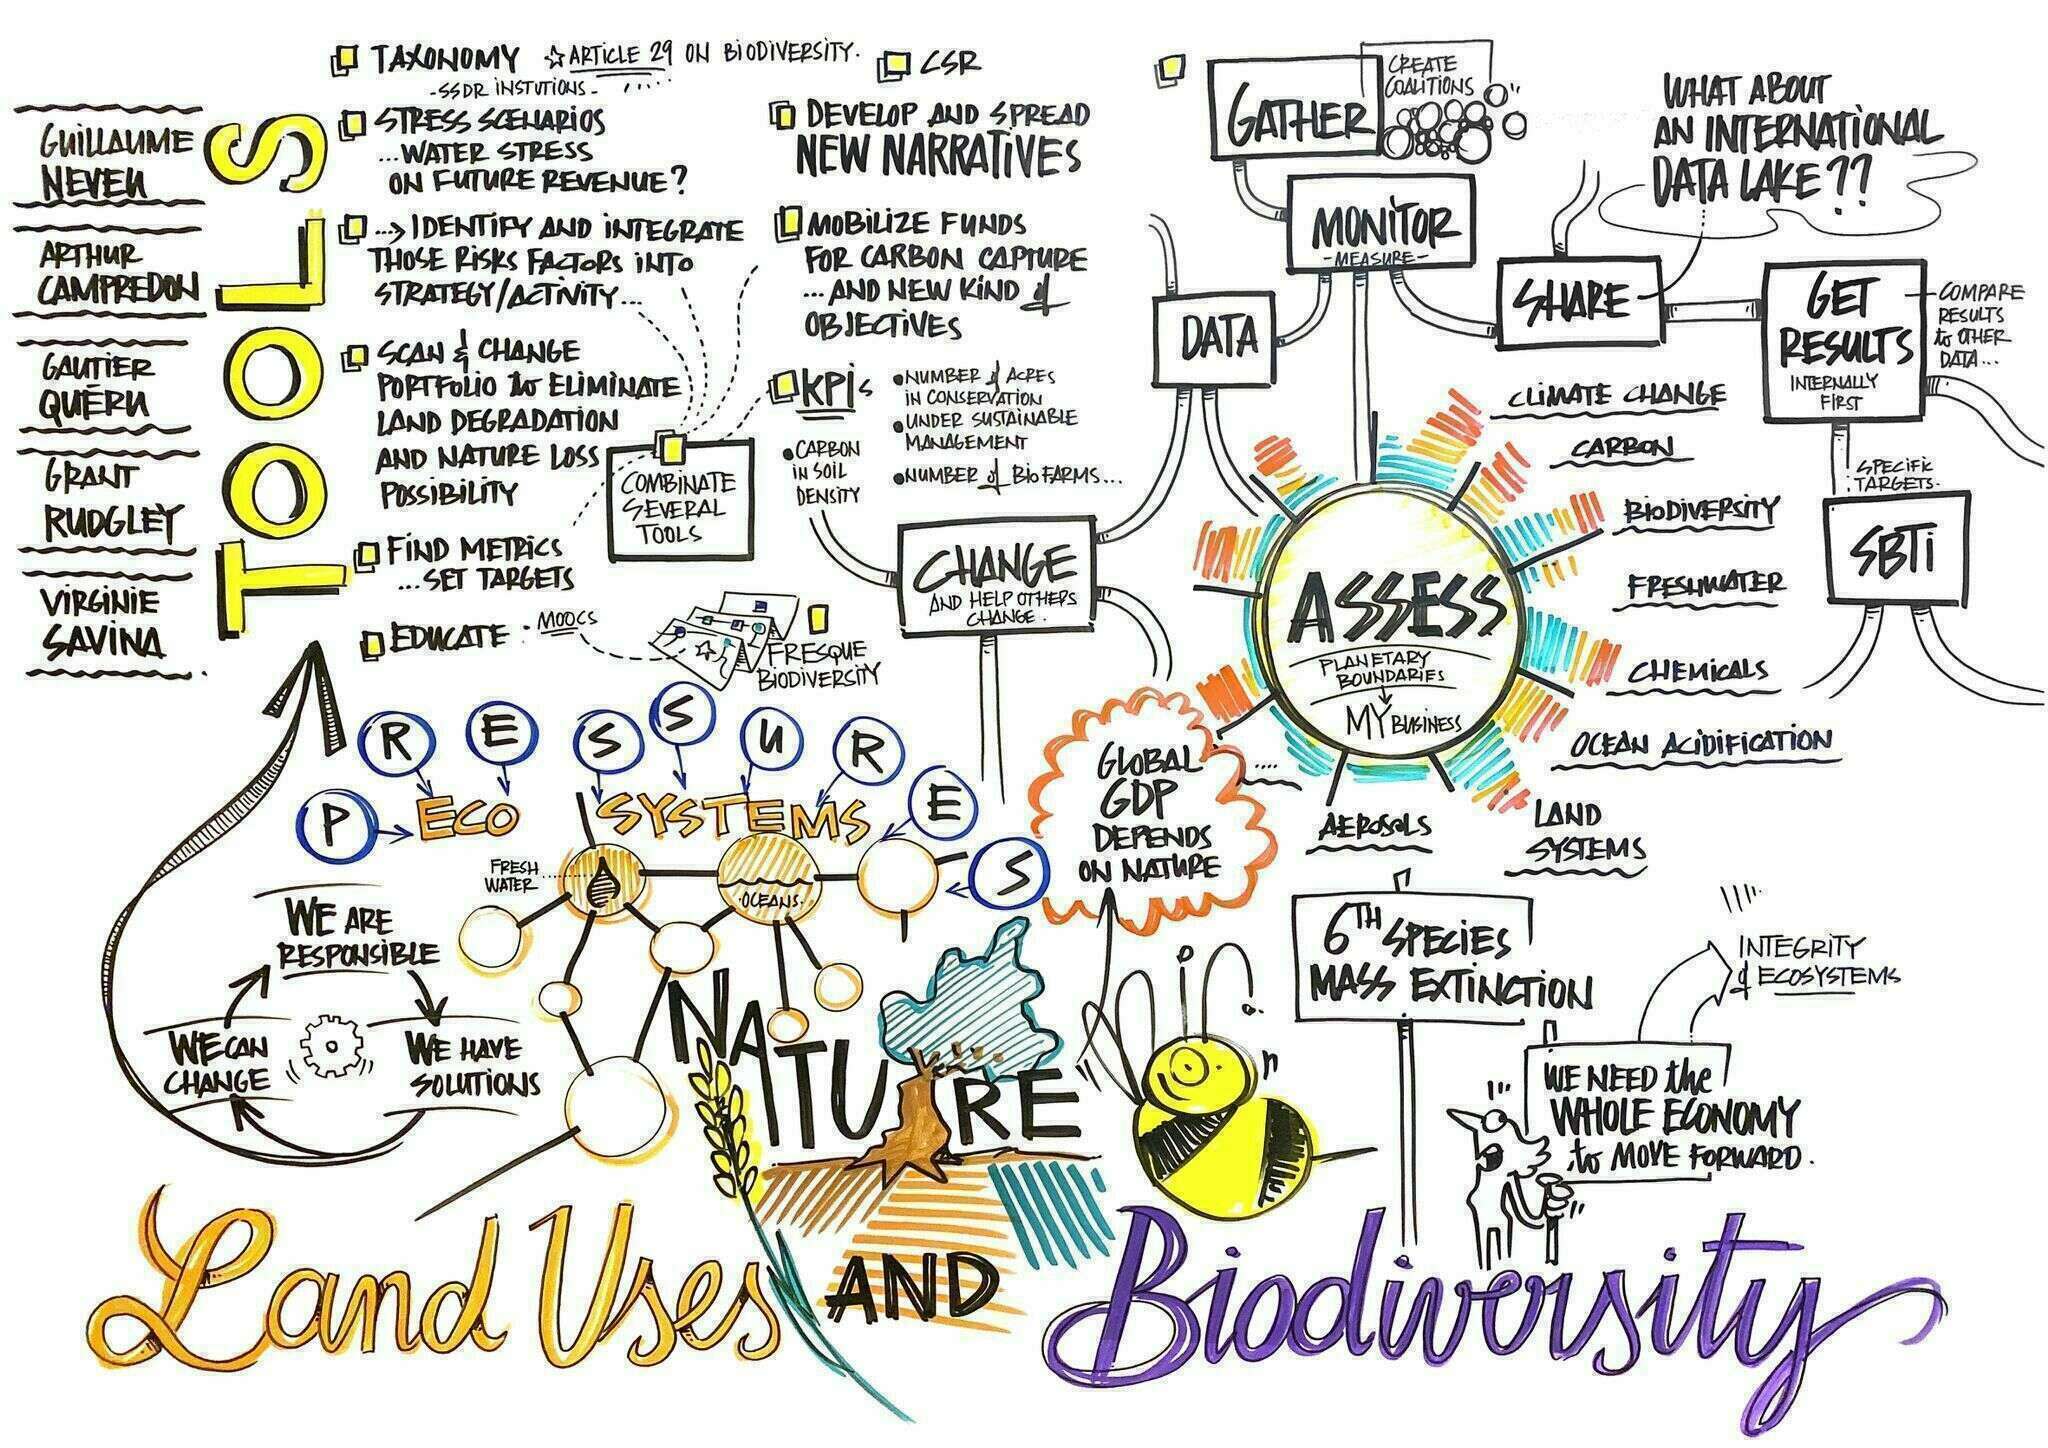 GUILLAUME
NEVEU
ARTHUR
CAMPREDON
GAUTIER
QUÉRU
GRANT
RUDGLEY
VIRGINIE
SAVINA
TOOLS
TAXONOMY ☆ARTICLE 29 ON BIODIVERSITY.
-SSDR INSTUTIONS-
STRESS SCENARIOS
...WATER STRESS
ON FUTURE REVENUE?
...→IDENTIFY AND INTEGRATE
THOSE RISKS FACTORS INTO
STRATEGY/ACTIVITY...
SCAN & CHANGE
PORTFOLIO to ELIMINATE
LAND DEGRADATION
AND NATURE LOSS
POSSIBILITY
FIND METRICS
...SET TARGETS
EDUCATE : MOOCS
FRESQUE
BIODIVERSITY
COMBINATE
SEVERAL
TOOLS
CSR
DEVELOP AND SPREAD
NEW NARRATIVES
MOBILIZE FUNDS
FOR CARBON CAPTURE
...AND NEW KIND of
OBJECTIVES
KPIs
•CARBON
IN SOIL
DENSITY
•NUMBER of ACRES
IN CONSERVATION
•UNDER SUSTAINABLE
MANAGEMENT
•NUMBER of BIO FARMS...
GATHER
CREATE
COALITIONS
MONITOR
-MEASURE-
WHAT ABOUT
AN INTERNATIONAL
DATA LAKE??
SHARE
GET
RESULTS
INTERNALLY
FIRST
COMPARE
RESULTS
to OTHER
DATA...
SPECIFIC
TARGETS.
SBTi
DATA
CHANGE
AND HELP OTHERS
CHANGE.
ASSESS
PLANETARY
BOUNDARIES
MY BUSINESS
CLIMATE CHANGE
CARBON
BIODIVERSITY
FRESHWATER
CHEMICALS
OCEAN ACIDIFICATION
LAND
SYSTEMS
AEROSOLS
....
GLOBAL
GDP
DEPENDS
ON NATURE
PRESSURES
ECO SYSTEMS
FRESH
WATER
·OCEANS·
WE ARE
RESPONSIBLE
WE HAVE
SOLUTIONS
WE CAN
CHANGE
NATURE
6TH SPECIES
MASS EXTINCTION
INTEGRITY
of ECOSYSTEMS
WE NEED the
WHOLE ECONOMY
to MOVE FORWARD.
Land Uses AND Biodiversity